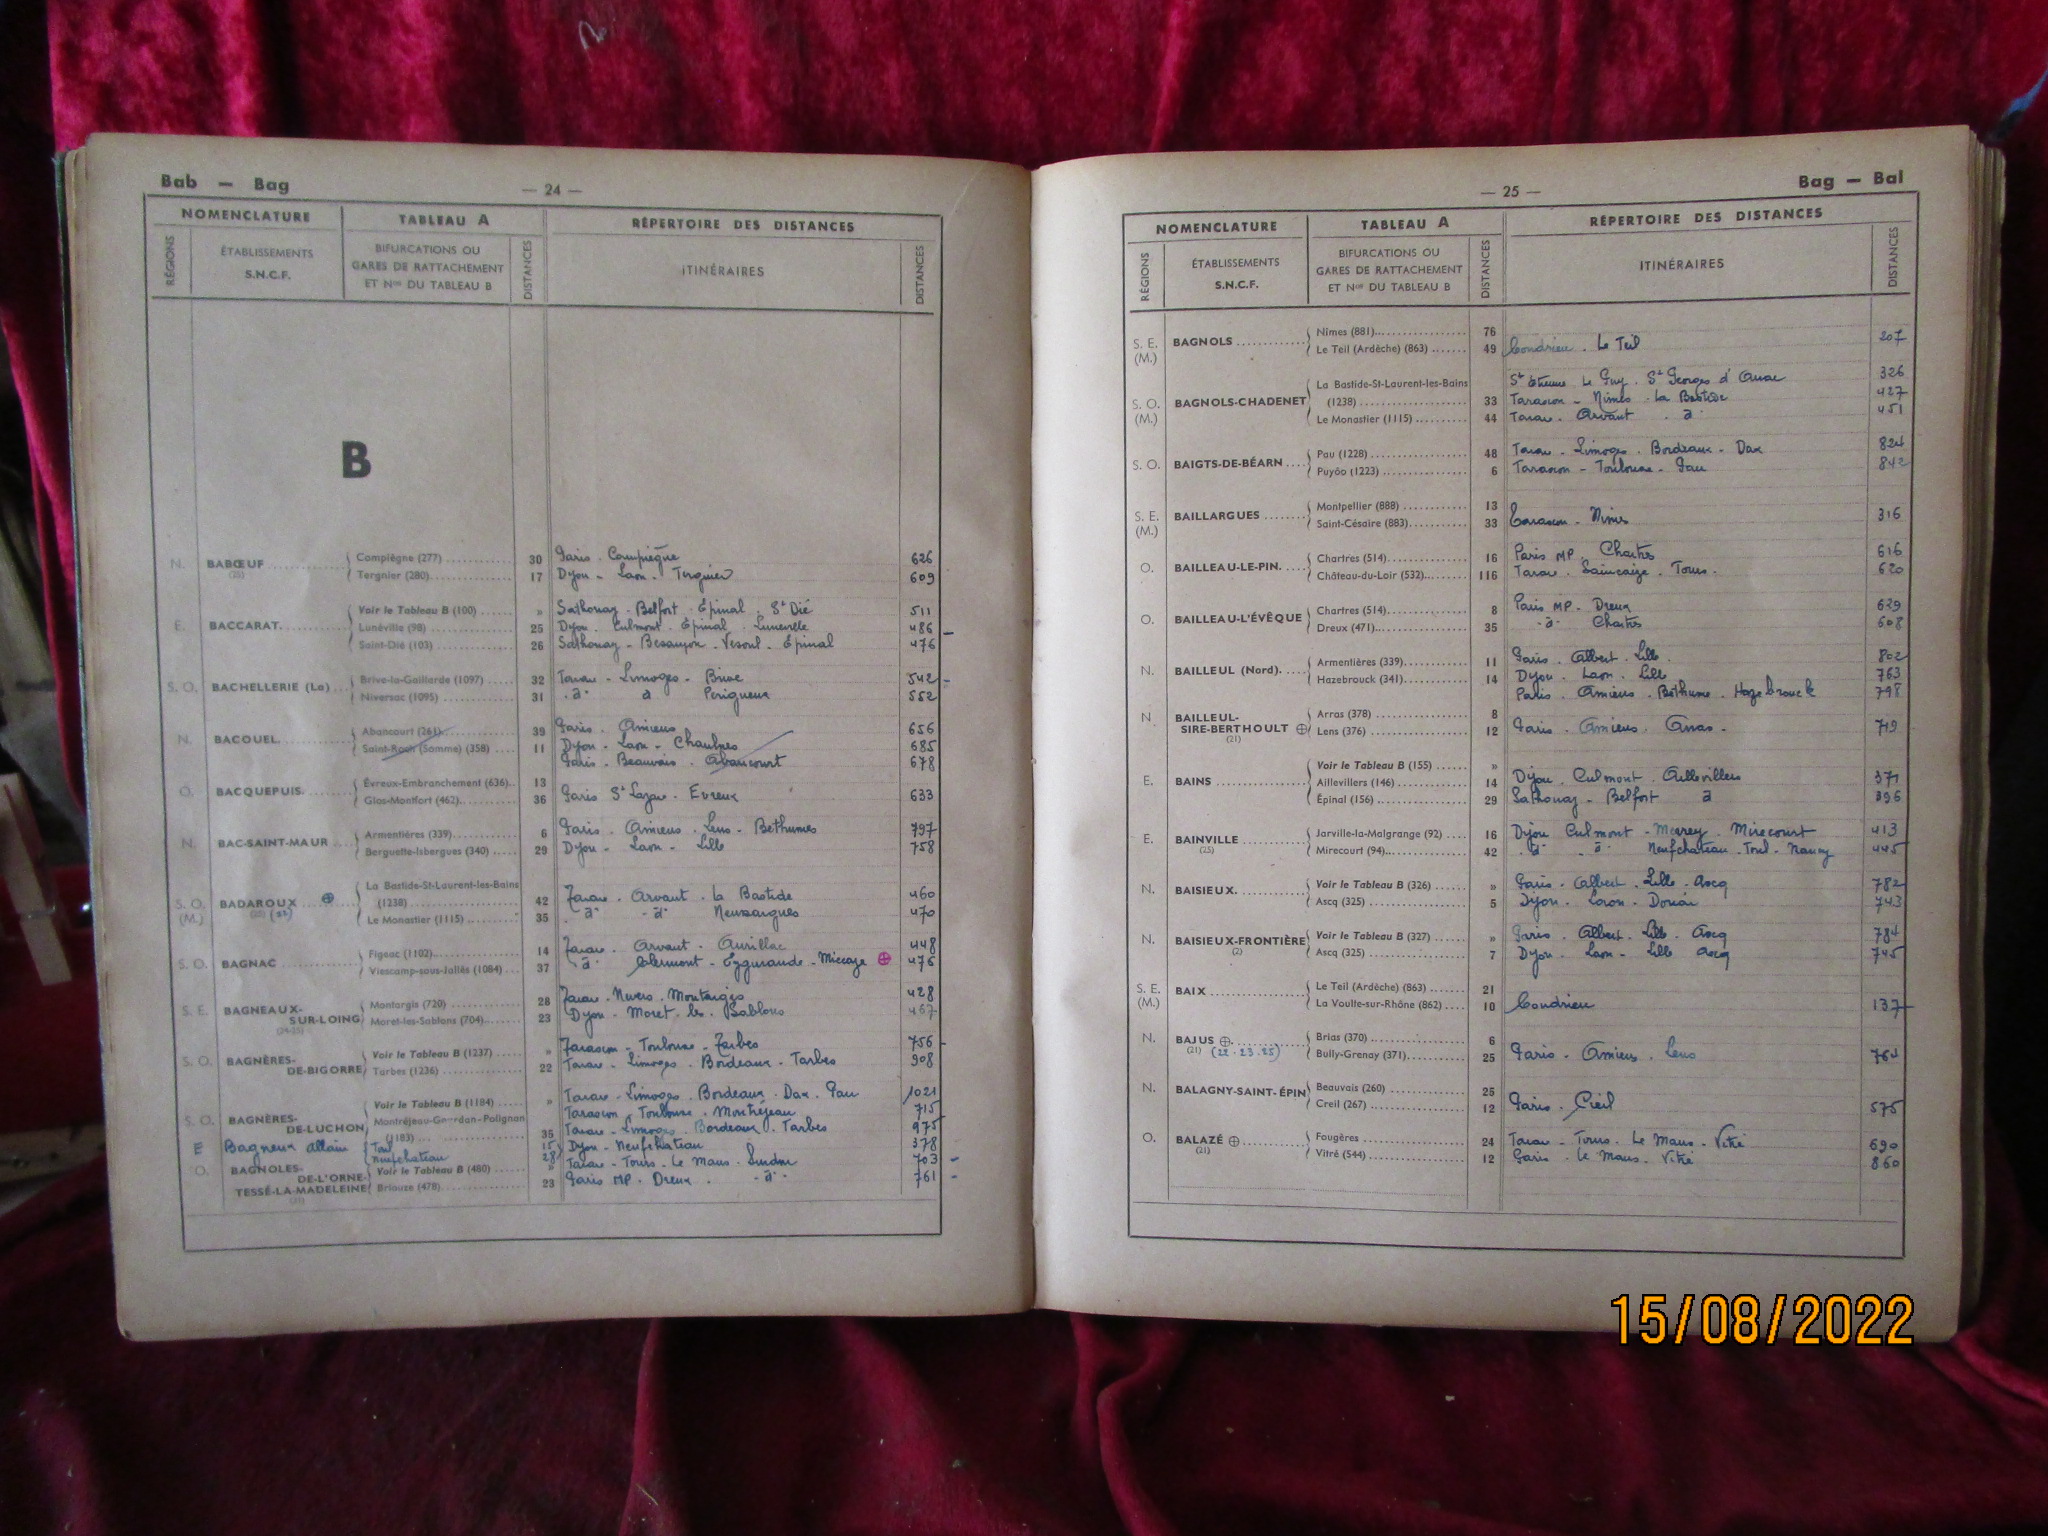 Bab — Bag
— 24 —
NOMENCLATURE TABLEAU A RÉPERTOIRE DES DISTANCES
RÉGIONS ÉTABLISSEMENTS S.N.C.F. BIFURCATIONS OU GARES DE RATTACHEMENT ET Nos DU TABLEAU B DISTANCES ITINÉRAIRES DISTANCES
B
N. BABŒUF (25) Compiègne (277) 30 Paris. Compiègne 626
Tergnier (280) 17 Dijon - Laon - Tergnier 609
Voir le Tableau B (100) » Sathonay - Belfort - Epinal - St Dié 511
E. BACCARAT. Lunéville (98) 25 Dijon. Culmont. Epinal. Lunéville 486
Saint-Dié (103) 26 Sathonay - Besançon - Vesoul - Epinal 476
S. O. BACHELLERIE (La) Brive-la-Gaillarde (1097) 32 Limoges - Brive 542
Niversac (1095) 31 - d° d° Périgueux 552
N. BACOUEL. Abancourt (261) 39 Paris. Amiens 656
Saint-Roch (Somme) (358) 11 Dijon - Laon - Chaulnes 685
Paris - Beauvais - Abancourt 678
O. BACQUEPUIS. Évreux-Embranchement (636) 13
Glos-Montfort (462) 36 Paris St Lazare - Evreux 633
N. BAC-SAINT-MAUR Armentières (339) 6 Paris. Amiens. Lens - Bethunes 797
Berguette-Isbergues (340) 29 Dijon - Laon - Lille 758
La Bastide-St-Laurent-les-Bains
S. O. (M.) BADAROUX ⊕ (1238) 42 Arvant - La Bastide 460
Le Monastier (1115) 35 d° - d° Neussargues 470
Figeac (1102) 14 Arvant - Aurillac 448
S. O. BAGNAC Viescamp-sous-Jallès (1084) 37 d° Clermont - Eygurande - Miecaze ⊕ 476
S. E. BAGNEAUX-SUR-LOING Montargis (720) 28 Nevers - Montargis 428
Moret-les-Sablons (704) 23 Dijon - Moret les Sablons 467
S. O. BAGNÈRES-DE-BIGORRE Voir le Tableau B (1237) » Tarascon - Toulouse - Tarbes 756
Tarbes (1236) 22 Limoges - Bordeaux - Tarbes 908
Voir le Tableau B (1184) » Limoges. Bordeaux. Dax. Pau 1021
S. O. BAGNÈRES-DE-LUCHON Montréjeau-Gourdan-Polignan Tarascon Toulouse - Montréjeau 715
(1183) 35 Limoges - Bordeaux - Tarbes 975
E Bagneux allain Toul 15 Dijon - Neufchateau 378
Neufchateau 28
O. BAGNOLES-DE-L'ORNE-TESSÉ-LA-MADELEINE Voir le Tableau B (480) » Tours - Le Mans - Surdon 703
Briouze (478) 23 Paris MP - Dreux - d° - 761
Bag — Bal
— 25 —
NOMENCLATURE TABLEAU A RÉPERTOIRE DES DISTANCES
RÉGIONS ÉTABLISSEMENTS S.N.C.F. BIFURCATIONS OU GARES DE RATTACHEMENT ET Nos DU TABLEAU B DISTANCES ITINÉRAIRES DISTANCES
S. E. (M.) BAGNOLS Nîmes (881) 76
Le Teil (Ardèche) (863) 49 Condrieu. Le Teil 207
La Bastide-St-Laurent-les-Bains St Etienne Le Puy. St Georges d'Aurac 326
S. O. (M.) BAGNOLS-CHADENET (1238) 33 Tarascon - Nimes - La Bastide 427
Le Monastier (1115) 44 Arvant - d° 451
S. O. BAIGTS-DE-BÉARN Pau (1228) 48 Limoges - Bordeaux - Dax 824
Puyôo (1223) 6 Tarascon - Toulouse - Pau 842
S. E. (M.) BAILLARGUES Montpellier (888) 13
Saint-Césaire (883) 33 Tarascon - Nimes 316
O. BAILLEAU-LE-PIN. Chartres (514) 16 Paris MP. Chartres 616
Château-du-Loir (532) 116 Saincaize. Tours. 620
O. BAILLEAU-L'ÉVÊQUE Chartres (514) 8 Paris MP. Dreux 629
Dreux (471) 35 - d° - Chartres 608
N. BAILLEUL (Nord). Armentières (339) 11 Paris. Albert. Lille. 802
Hazebrouck (341) 14 Dijon. Laon. Lille 763
Paris. Amiens. Béthune. Hazebrouck 798
N. BAILLEUL-SIRE-BERTHOULT ⊕ (21) Arras (378) 8
Lens (376) 12 Paris. Amiens. Arras. 719
Voir le Tableau B (155) »
E. BAINS Aillevillers (146) 14 Dijon. Culmont. Aillevillers 371
Épinal (156) 29 Sathonay - Belfort d° 396
E. BAINVILLE (25) Jarville-la-Malgrange (92) 16 Dijon Culmont - Merrey. Mirecourt 413
Mirecourt (94) 42 d° - d° Neufchateau - Toul - Nancy 445
N. BAISIEUX. Voir le Tableau B (326) » Paris. Albert. Lille. Ascq 782
Ascq (325) 5 Dijon. Laon. Douai 743
N. BAISIEUX-FRONTIÈRE (2) Voir le Tableau B (327) » Paris. Albert. Lille. Ascq 784
Ascq (325) 7 Dijon. Laon - Lille Ascq 745
S. E. (M.) BAIX Le Teil (Ardèche) (863) 21
La Voulte-sur-Rhône (862) 10 Condrieu 137
N. BAJUS ⊕. (21) (22.23.25) Brias (370) 6
Bully-Grenay (371) 25 Paris - Amiens. Lens 764
N. BALAGNY-SAINT-ÉPIN Beauvais (260) 25
Creil (267) 12 Paris. Creil 575
O. BALAZÉ ⊕ (21) Fougères 24 Tours. Le Mans. Vitré 690
Vitré (544) 12 Paris. Le Mans. Vitré 860
15/08/2022